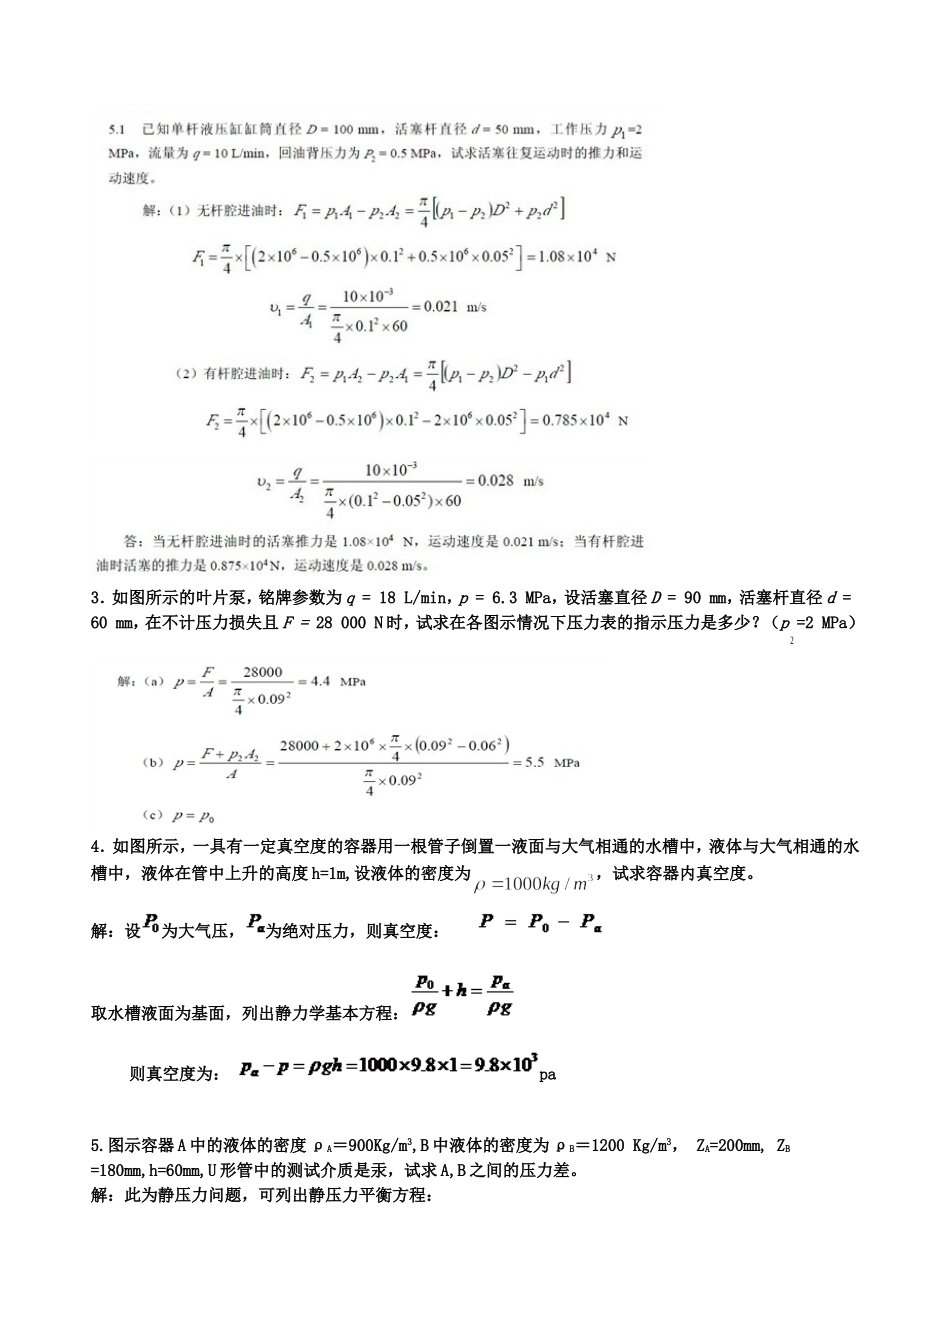 5.1 已知单杆液压缸缸筒直径 D = 100 mm，活塞杆直径 d = 50 mm，工作压力 p₁=2
MPa，流量为 q = 10 L/min，回油背压力为 P₂ = 0.5 MPa，试求活塞往复运动时的推力和运
动速度。
解：（1）无杆腔进油时：F₁ = p₁A₁ − p₂A₂ = π/4[(p₁ − p₂)D² + p₂d²]
F₁ = π/4×[(2×10⁶ − 0.5×10⁶)×0.1² + 0.5×10⁶×0.05²] = 1.08×10⁴ N
υ₁ = q/A₁ = 10×10⁻³/(π/4×0.1²×60) = 0.021 m/s
（2）有杆腔进油时：F₂ = p₁A₂ − p₂A₁ = π/4[(p₁ − p₂)D² − p₁d²]
F₂ = π/4×[(2×10⁶ − 0.5×10⁶)×0.1² − 2×10⁶×0.05²] = 0.785×10⁴ N
υ₂ = q/A₂ = 10×10⁻³/(π/4×(0.1² − 0.05²)×60) = 0.028 m/s
答：当无杆腔进油时的活塞推力是 1.08×10⁴ N，运动速度是 0.021 m/s；当有杆腔进
油时活塞的推力是 0.875×10⁴N，运动速度是 0.028 m/s。
3．如图所示的叶片泵，铭牌参数为 q = 18 L/min，p = 6.3 MPa，设活塞直径 D = 90 mm，活塞杆直径 d =
60 mm，在不计压力损失且 F = 28 000 N时，试求在各图示情况下压力表的指示压力是多少？（p₂=2 MPa）
解：（a）p = F/A = 28000/(π/4×0.09²) = 4.4 MPa
（b）p = (F + p₂A₂)/A = (28000 + 2×10⁶×π/4×(0.09² − 0.06²))/(π/4×0.09²) = 5.5 MPa
（c）p = p₀
4．如图所示，一具有一定真空度的容器用一根管子倒置一液面与大气相通的水槽中，液体与大气相通的水
槽中，液体在管中上升的高度 h=1m,设液体的密度为 ρ =1000kg / m³，试求容器内真空度。
解：设P₀为大气压，Pₐ为绝对压力，则真空度： P = P₀ − Pₐ
取水槽液面为基面，列出静力学基本方程：p₀/ρg + h = pₐ/ρg
则真空度为： pₐ − p = ρgh = 1000×9.8×1 = 9.8×10³pa
5.图示容器 A 中的液体的密度 ρA＝900Kg/m³,B 中液体的密度为 ρB＝1200 Kg/m³， ZA=200mm, ZB
=180mm,h=60mm,U 形管中的测试介质是汞，试求 A,B 之间的压力差。
解：此为静压力问题，可列出静压力平衡方程：